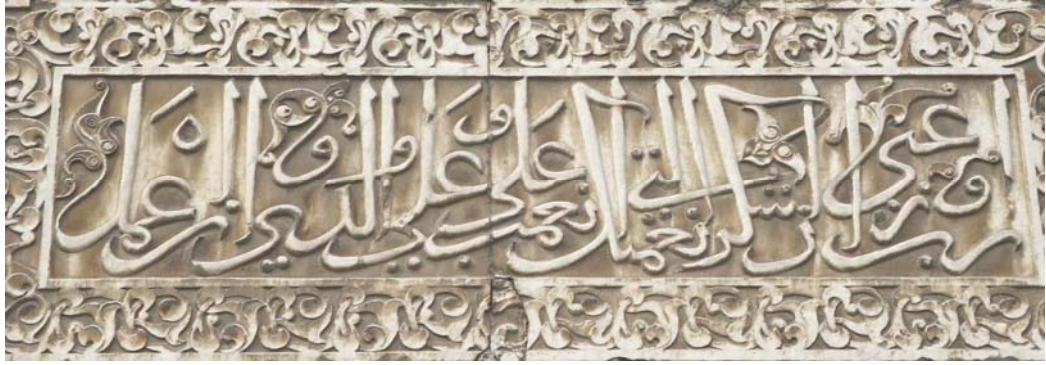 رب اوزعني ان اشكر نعمتك التي انعمت علي وعلى والدي وان اعمل